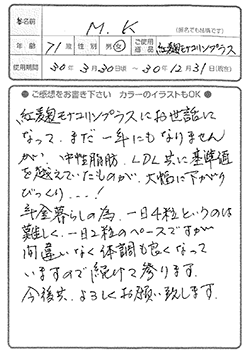 お名前 M.K (匿名でも結構です)
年齢 71才 性別 男・女 ご使用商品 紅麹モナコリンプラス
使用期間 30年3月30日頃 ～ 30年12月31日(現在)
● ご感想をお書き下さい カラーのイラストもOK ●
紅麹モナコリンプラスにお世話に
なって、まだ一年にもなりません
が、中性脂肪、LDL共に基準値
を越えていたものが、大幅に下がり
びっくり...!
年金暮らしの為、一日4粒というのは
難しく、一日2粒のペースですが
間違いなく体調も良くなって
いますので続けて参ります。
今後共、よろしくお願い致します。